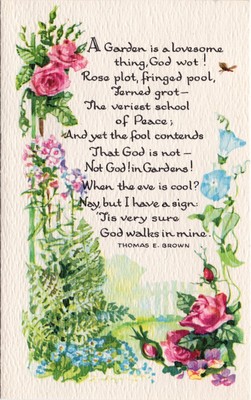 A Garden is a lovesome
thing, God wot!
Rose plot, fringed pool,
Ferned grot—
The veriest school
of Peace;
And yet the fool contends
That God is not—
Not God! in Gardens!
When the eve is cool?
Nay, but I have a sign:
'Tis very sure
God walks in mine.
THOMAS E. BROWN